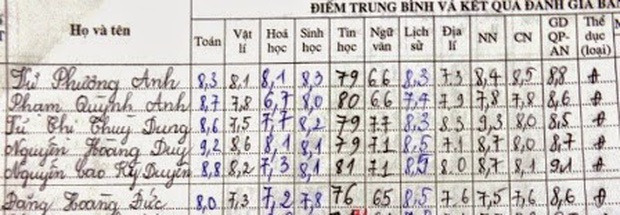 ĐIỂM TRUNG BÌNH VÀ KẾT QUẢ ĐÁNH GIÁ
Họ và tên Toán Vật lí Hoá học Sinh học Tin học Ngữ văn Lịch sử Địa lí NN CN GD QP-AN Thể dục (loại)
Từ Phương Anh 8,3 8,1 8,1 8,3 79 66 8,3 7 3 8,4 8,5 8,8 Đ
Phạm Quỳnh Anh 8,7 7,8 6,7 8,0 80 6,6 7,4 7 9 7,8 7,8 8,6 Đ
Từ Thị Thuỳ Dung 8,6 7,5 7,7 8,2 79 7.7 8,3 8.3 9,3 8.0 8,5 Đ
Nguyễn Hoàng Duy 9,2 8,6 8,1 8,1 79 7.1 8,5 7.1 8,7 8,0 8,7 Đ
Nguyễn Cao Kỳ Duyên 8,8 8,2 7,3 8,1 81 7.1 8,5 8.0 8,7 8,1 9,1 Đ
Đặng Hoàng Đức 8,0 7,3 7,2 7,8 76 65 8,5 7.6 7,5 7,6 8,6 Đ